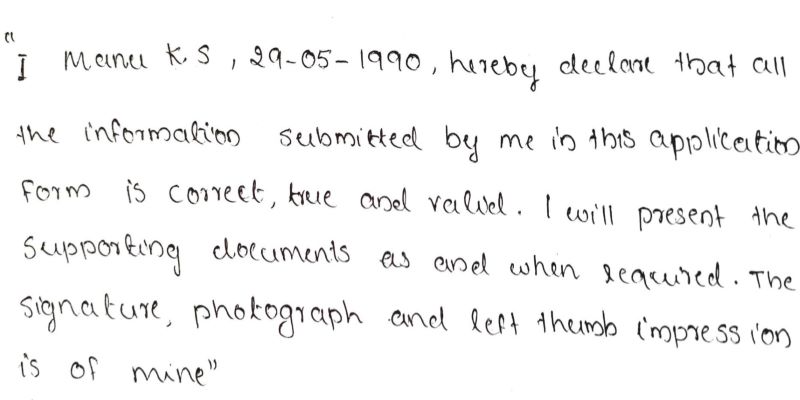 "I Manu K.S, 29-05-1990, hereby declare that all
the information submitted by me in this application
form is correct, true and valid. I will present the
supporting documents as and when required. The
signature, photograph and left thumb impression
is of mine"